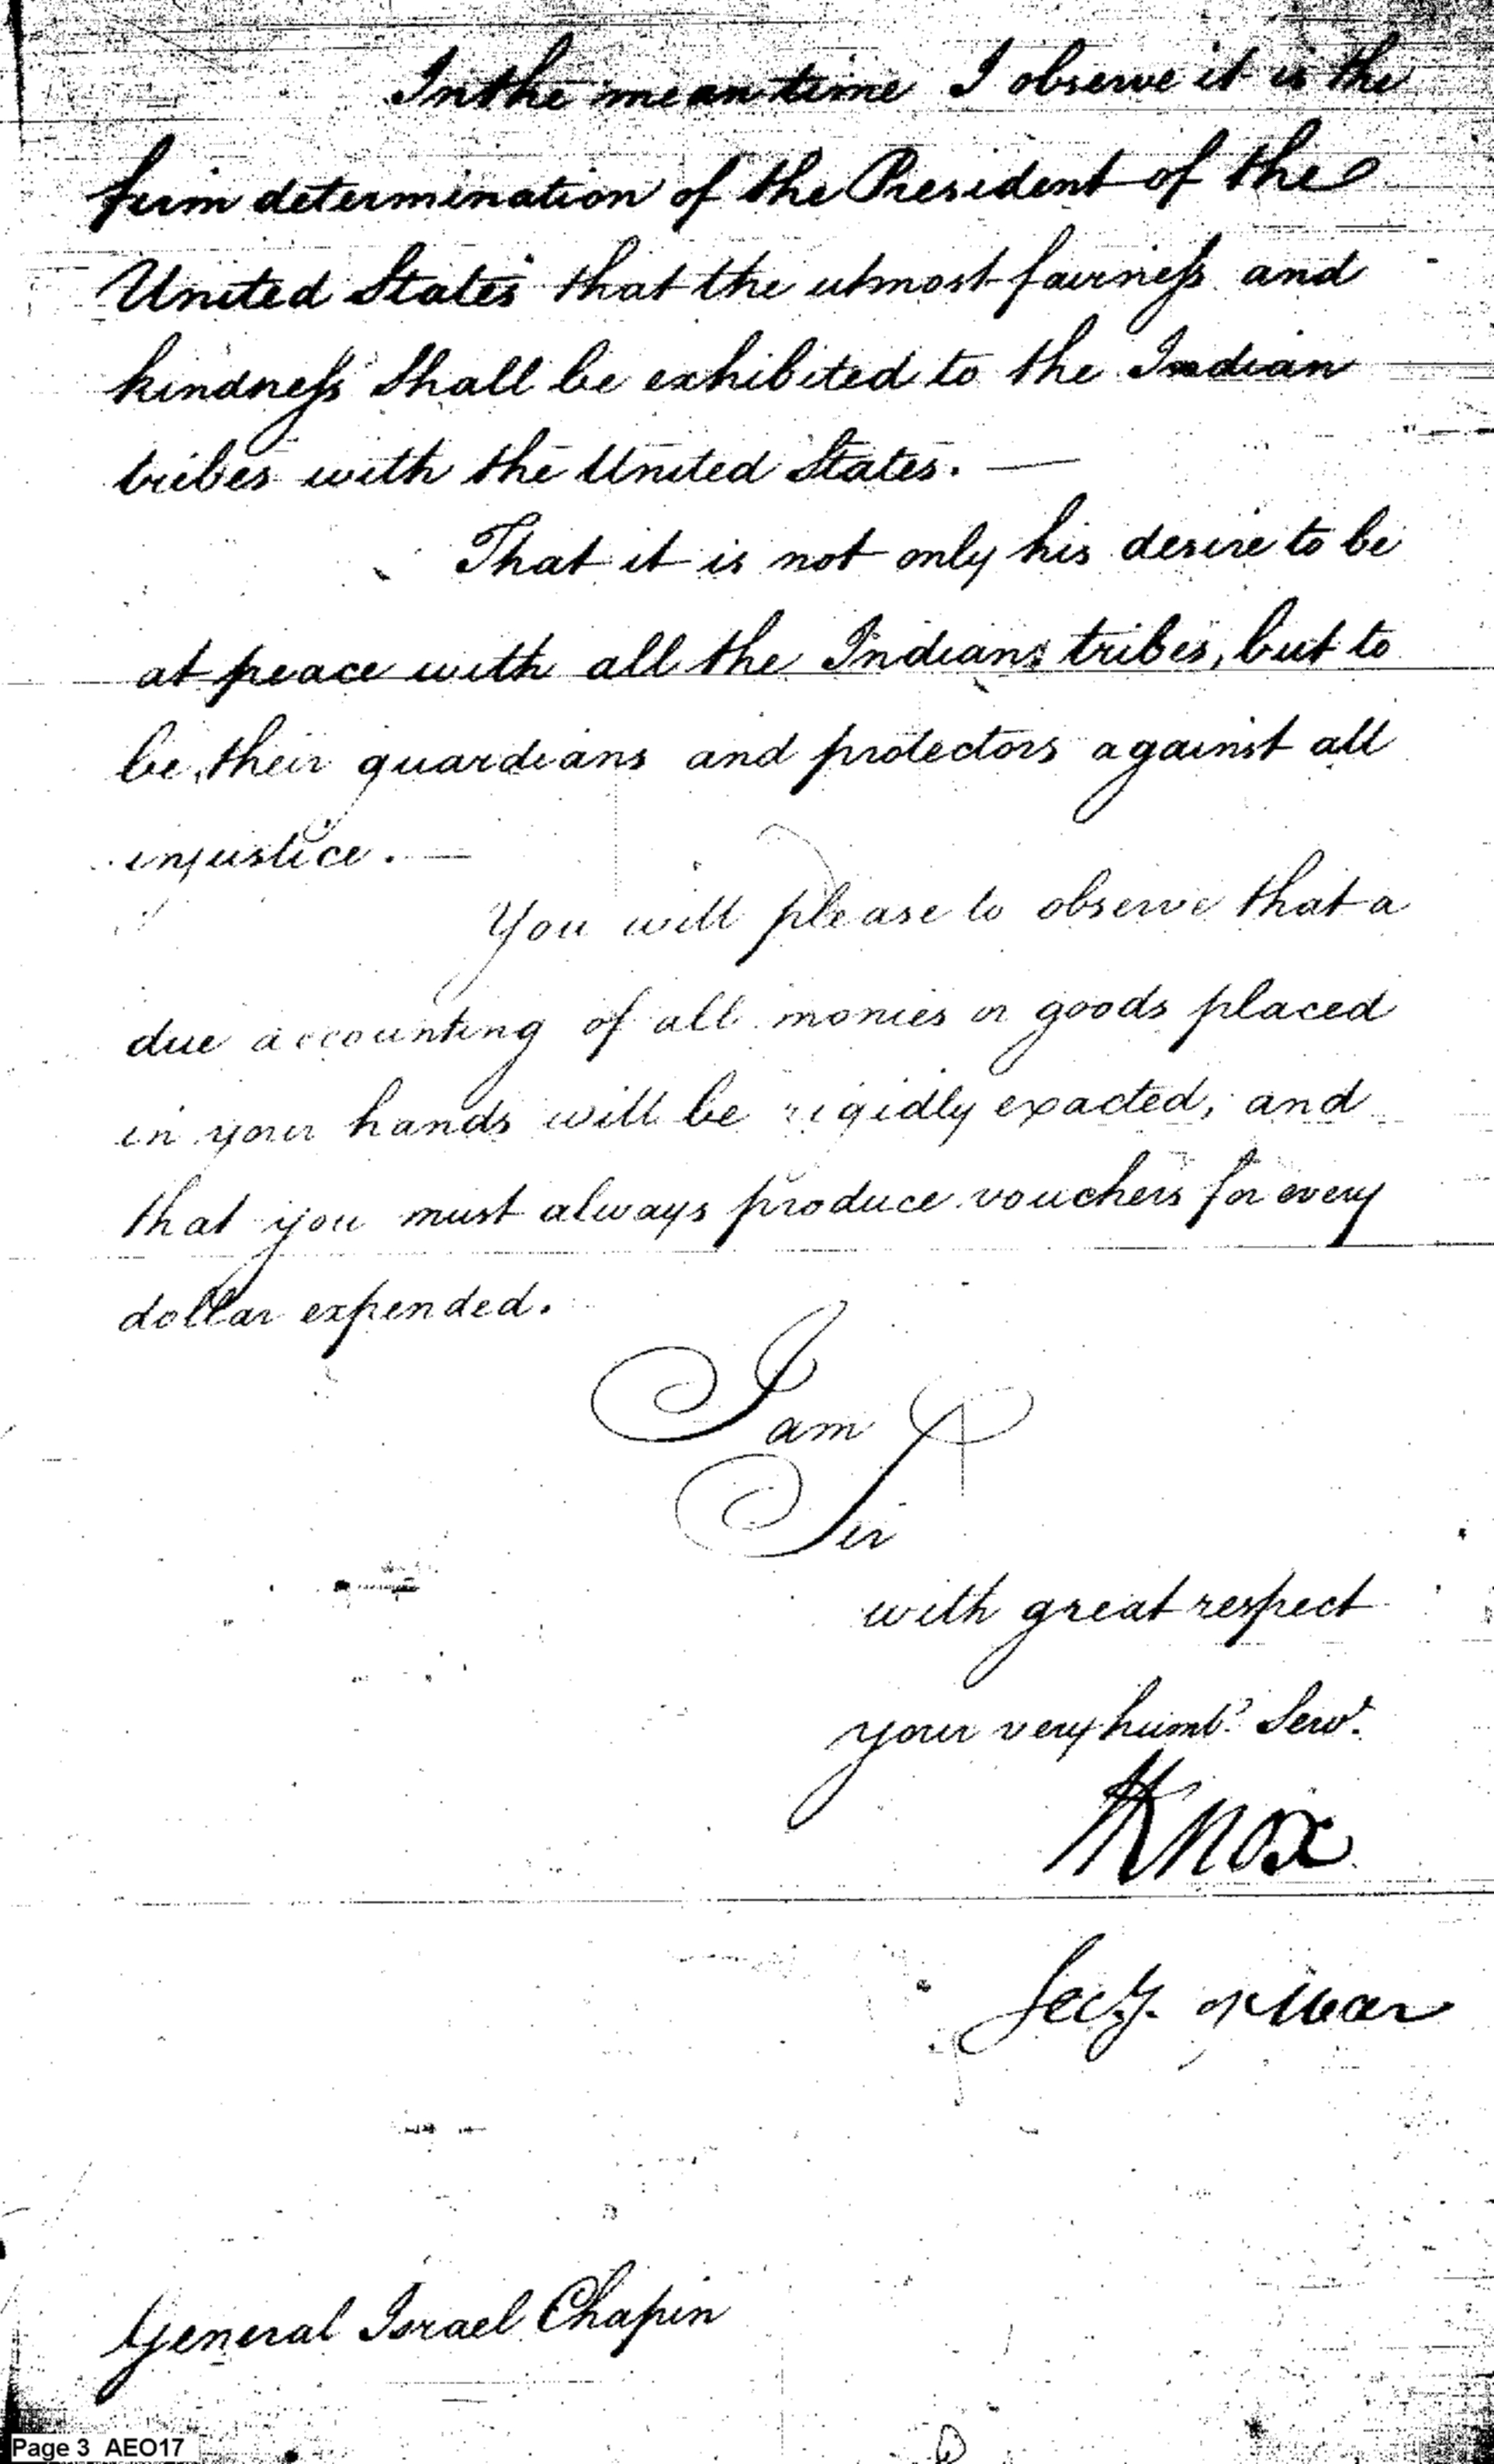 In the mean time I observe it is the
firm determination of the President of the
United States that the utmost fairness and
kindness shall be exhibited to the Indian
tribes with the United States. —
That it is not only his desire to be
at peace with all the Indians tribes, but to
be their guardians and protectors against all
injustice. —
You will please to observe that a
due accounting of all monies or goods placed
in your hands will be rigidly exacted, and
that you must always produce vouchers for every
dollar expended.
I am
Sir
with great respect
your very humbe. Servt.
HKnox
Secy. of War
General Israel Chapin
Page 3 AEO17